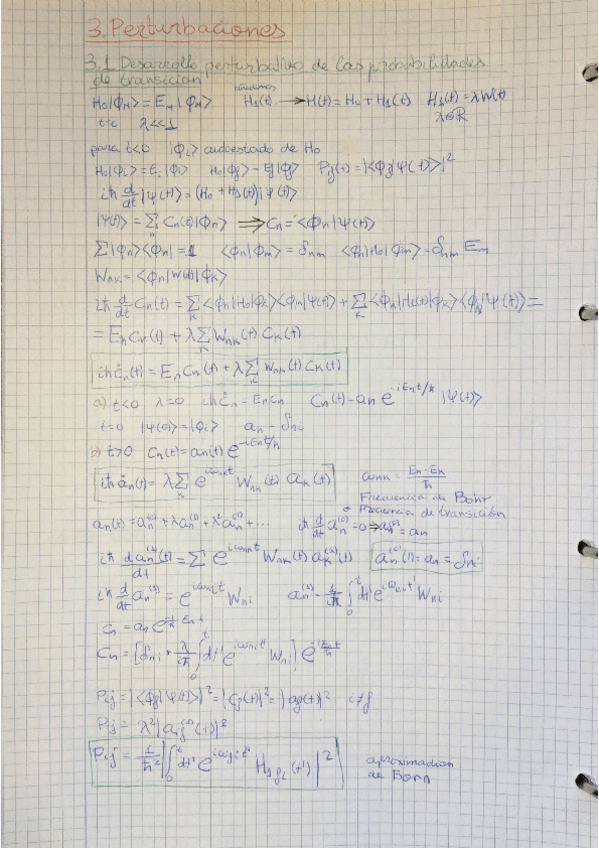 3. Perturbaciones
3.1 Desarrollo perturbativo de las probabilidades
de transicion
H₀|φₙ⟩ = Eₙ|φₙ⟩ H₁(t) → H(t) = H₀ + H₁(t) H₁(t) = λW(t)
λ≪1 λ∈ℝ
para t<0 |φᵢ⟩ autoestado de H₀
H₀|φᵢ⟩ = Eᵢ|φᵢ⟩ H₀|φf⟩ = Ef|φf⟩ Pif(t) = |⟨φf|ψ(t)⟩|²
iħ d/dt |ψ(t)⟩ = (H₀ + H₁(t))|ψ(t)⟩
|ψ(t)⟩ = Σₙ Cₙ(t)|φₙ⟩ ⟹ Cₙ = ⟨φₙ|ψ(t)⟩
Σ|φₙ⟩⟨φₙ| = 1 ⟨φₙ|φₘ⟩ = δₙₘ ⟨φₙ|H₀|φₘ⟩ = δₙₘ Eₙ
Wₙₖ = ⟨φₙ|W(t)|φₖ⟩
iħ d/dt Cₙ(t) = Σₖ ⟨φₙ|H₀|φₖ⟩⟨φₖ|ψ(t)⟩ + Σₖ ⟨φₙ|H₁(t)|φₖ⟩⟨φₖ|ψ(t)⟩ =
= Eₙ Cₙ(t) + λ Σₖ Wₙₖ(t) Cₖ(t)
iħ ċₙ(t) = Eₙ Cₙ(t) + λ Σₖ Wₙₖ(t) Cₖ(t)
a) t<0 λ=0 iħ ċₙ = Eₙ cₙ Cₙ(t) = aₙ e^(-iEₙt/ħ) |ψ(t)⟩
t=0 |ψ(0)⟩ = |φᵢ⟩ aₙ = δₙᵢ
b) t>0 Cₙ(t) = aₙ(t) e^(-iEₙt/ħ)
iħ ȧₙ(t) = λ Σₖ e^(iωₙₖt) Wₙₖ(t) aₖ(t) ωₙₖ = (Eₙ - Eₖ)/ħ
Frecuencia de Bohr
o Frecuencia de transición
aₙ(t) = aₙ⁽⁰⁾ + λaₙ⁽¹⁾ + λ²aₙ⁽²⁾ + ... iħ d/dt aₙ⁽⁰⁾ = 0 ⟹ aₙ⁽⁰⁾ = aₙ
iħ daₙ⁽¹⁾(t)/dt = Σ e^(iωₙₖt) Wₙₖ(t) aₖ⁽⁰⁾(t) aₙ⁽⁰⁾(t) = aₙ = δₙᵢ
iħ d/dt aₙ⁽¹⁾ = e^(iωₙᵢt) Wₙᵢ aₙ⁽¹⁾ = 1/iħ ∫₀ᵗ dt' e^(iωₙᵢt') Wₙᵢ
cₙ = aₙ e^(-i/ħ Eₙt)
Cₙ = [δₙᵢ + λ/iħ ∫₀ᵗ dt' e^(iωₙᵢt') Wₙᵢ] e^(-iEₙt/ħ)
Pif = |⟨φf|ψ(t)⟩|² = |Cf(t)|² = |af(t)|² i≠f
Pif = λ²|aif⁽¹⁾(t)|²
Pif = 1/ħ² |∫₀ᵗ dt' e^(iωfit') H₁fi(t')|² aproximacion
de Born